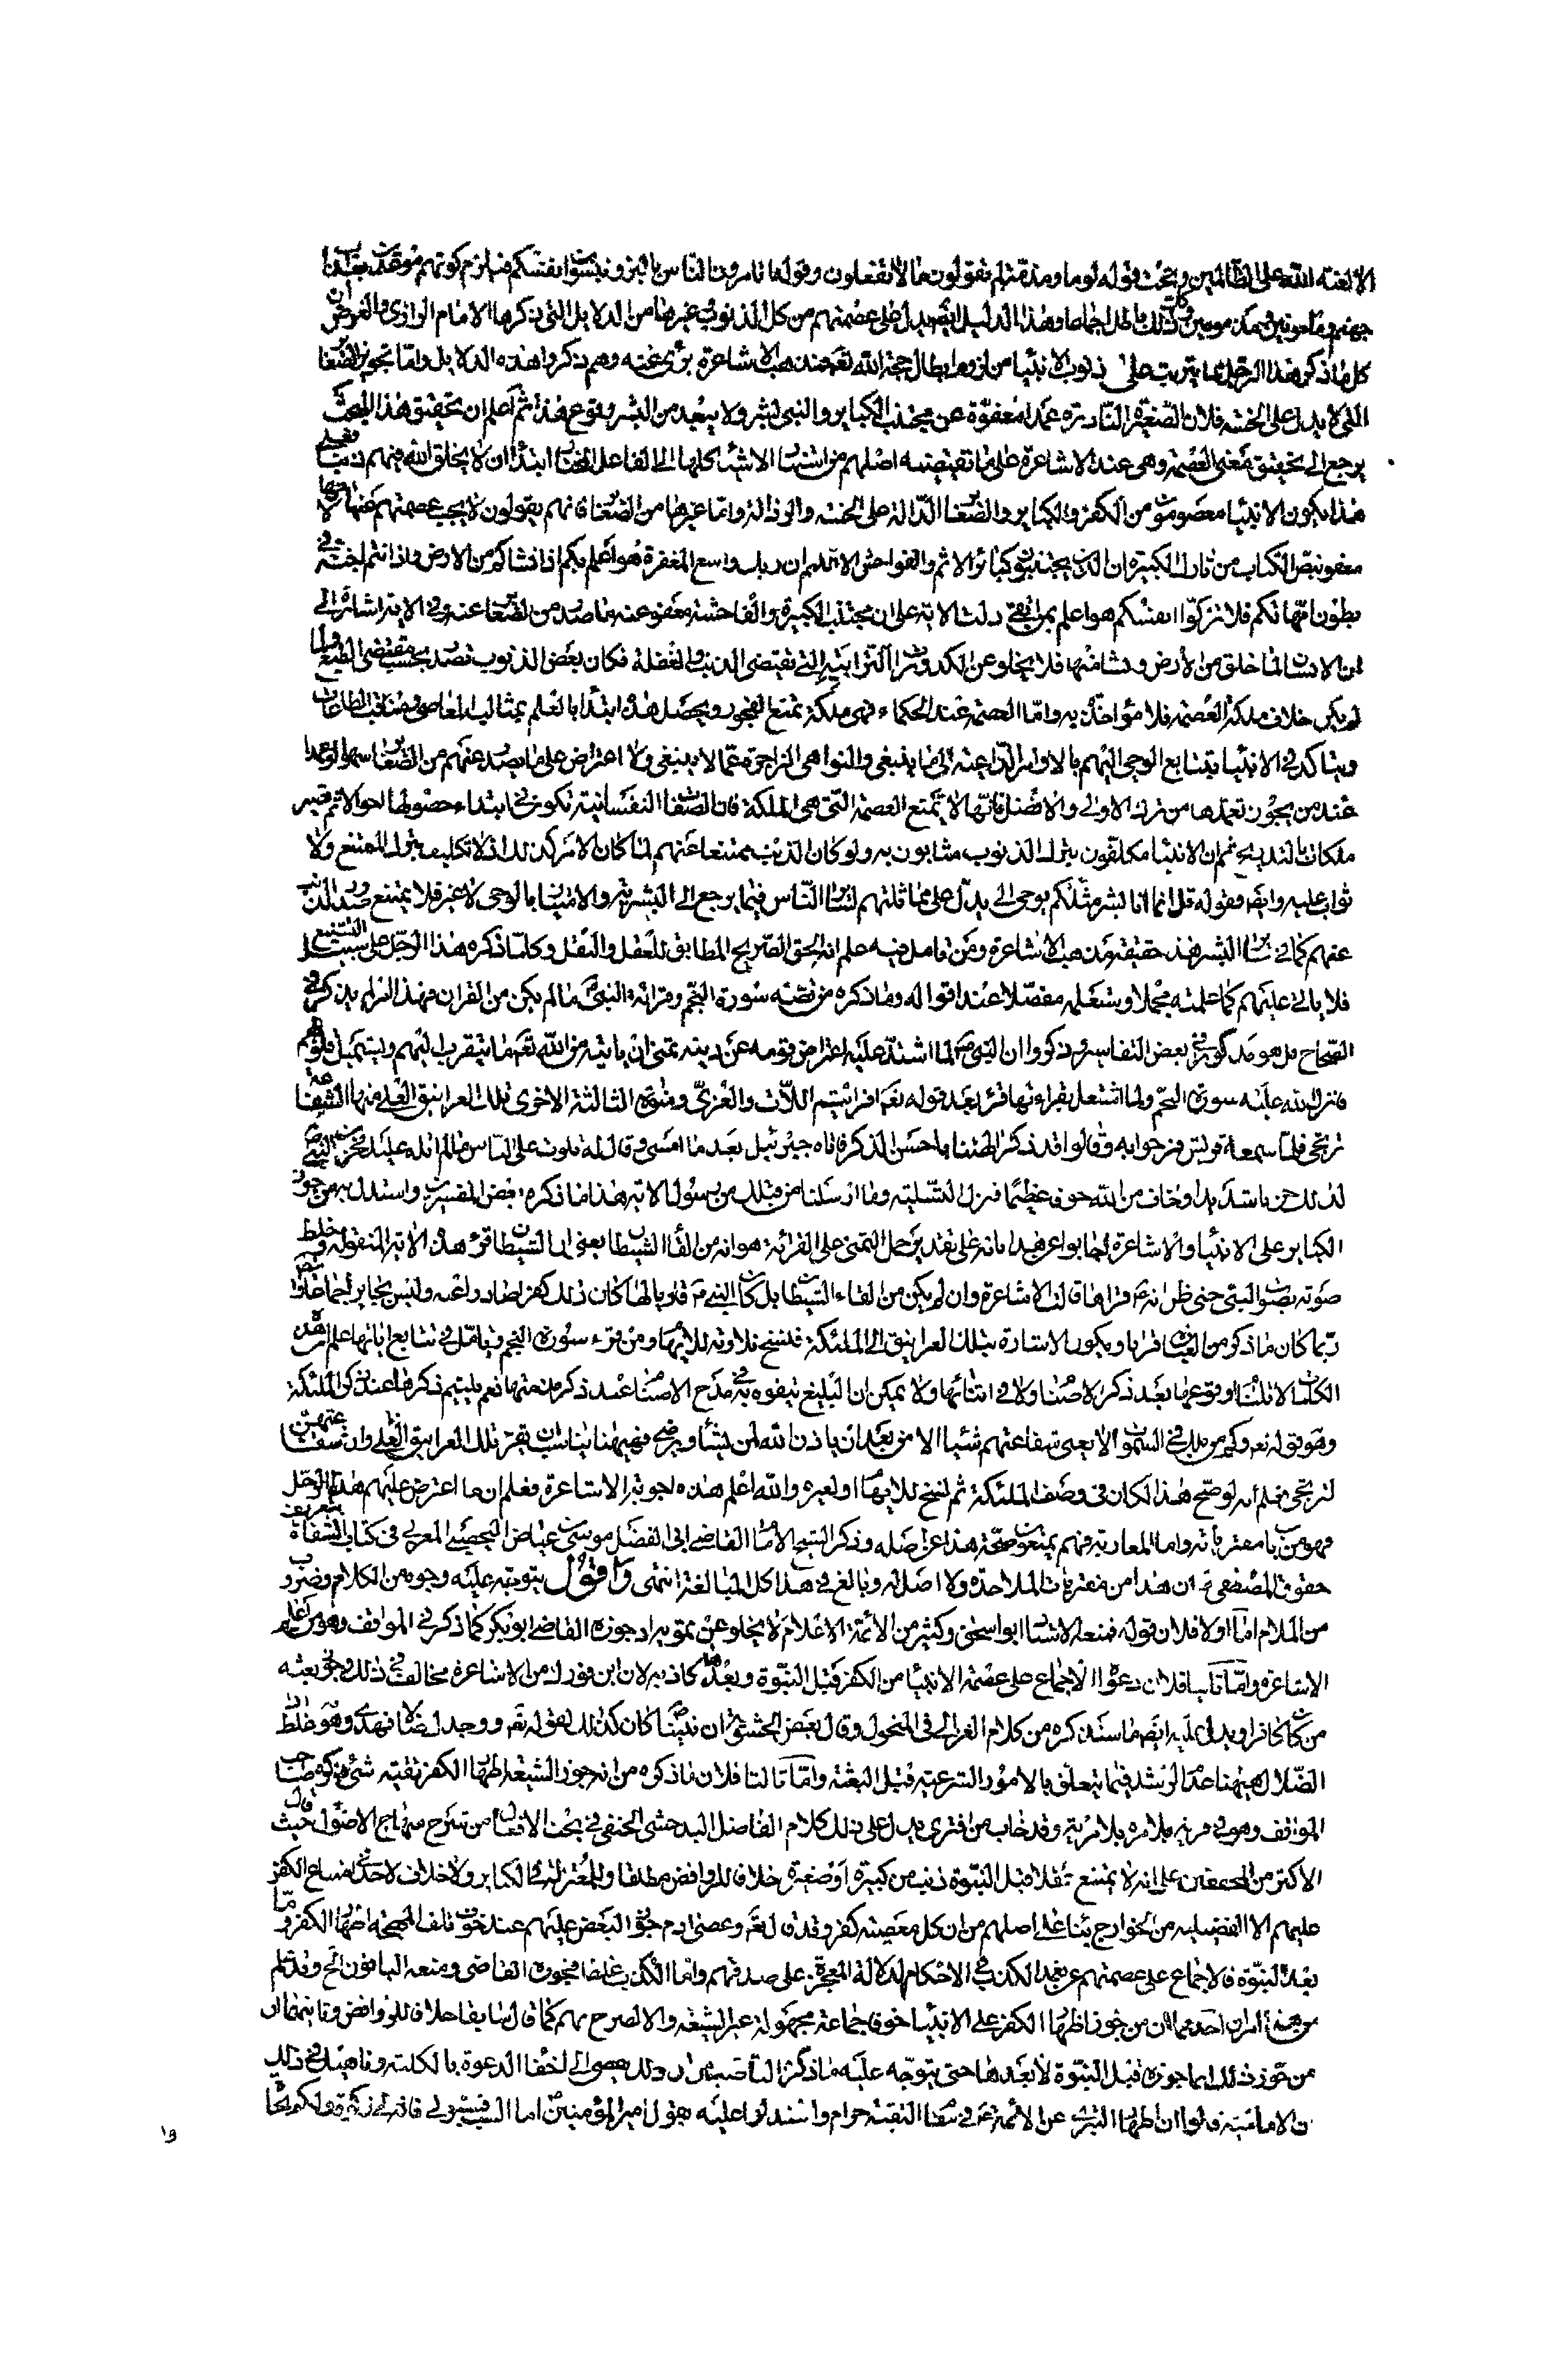 الا لعنة الله على الظالمين وتحت قوله لوما ومذمة لم تقولون ما لا تفعلون وقوله اتامرون الناس بالبر وتنسون انفسكم فيلزم كونهم موقنين بعذاب
جهنم وملومين ومذمومين وكل ذلك باطل اجماعا وهذا الدليل ايضا يدل على عصمتهم من كل الذنوب وغيرها من الدلايل التي ذكرها الامام الرازي والغرض ان
كل ما ذكره هذا الرجل مما يترتب على ذنوب الانبياء من لزوم ابطال حجة الله تعم فمذهب الاشاعرة برئ عنه وهم ذكروا هذه الدلايل واما تجويز الصغاير
التي لا يدل على الخسة فلان الصغيرة النادرة عمدا معفوة عن مجتنب الكباير والنبي بشر ولا يبعد من البشر وقوع هذا ثم اعلم ان تحقيق هذا المبحث
يرجع الى تحقيق معنى العصمة وهي عند الاشاعرة على ما تقتضيه اصلهم من استناد الاشياء كلها الى الفاعل المختار ابتداء ان لا يخلق الله فيهم ذنبا فعلى
هذا يكون الانبياء معصومون من الكفر والكباير والصغاير الدالة على الخسة والرذالة واما غيرها من الصغاير فانهم يقولون لا يجب عصمتهم عنها لانها
معفو بنص الكتاب من تارك الكبيرة ان الذين يجتنبون كبائر الاثم والفواحش الا اللمم ان ربك واسع المغفرة هو اعلم بكم اذ انشاكم من الارض واذ انتم اجنة في
بطون امهاتكم فلا تزكوا انفسكم هو اعلم بمن اتقى دلت الاية على ان مجتنب الكبيرة والفاحشة معفو عنه ما صدر من الصغاير عنه وفي الاية اشارة الى
ان الانسان لما خلق من الارض ونشا منها فلا يخلو عن الكدورات الترابية التي تقتضي الذنب والغفلة فكان بعض الذنوب تصدر بحسب مقتضى الطبع ولما
لم يكن خلاف ملكة العصمة فلا مؤاخذة به واما العصمة عند الحكماء فهي ملكة تمنع الفجور ويحصل هذه ابتداء بالعلم بمثالب المعاصي ومناقب الطاعات
ويتاكد في الانبياء بتتابع الوحي اليهم بالاوامر الداعية الى ما ينبغي والنواهي الزاجرة عما لا ينبغي ولا اعتراض على ما يصدر عنهم من الصغاير سهوا او عمدا
عند من يجوز تعمدها من ترك الاولى والافضل فانها لا تمنع العصمة التي هي الملكة فان الصفات النفسانية تكون في ابتداء حصولها احوالا ثم تصير
ملكات بالتدريج ثم ان الانبياء مكلفون بترك الذنوب مثابون به ولو كان الذنب ممتنعا عنهم لما كان الامر كذلك اذ لا تكليف بترك الممتنع ولا
ثواب عليه وايضا فقوله قل انما انا بشر مثلكم يوحى الي يدل على مماثلتهم لساير الناس فيما يرجع الى البشرية والامتياز بالوحي لا غير فلا يمتنع صدور الذنب
عنهم كما في ساير البشر هذه حقيقة مذهب الاشاعرة ومن تامل فيه علم انه الحق الصريح المطابق للعقل والنقل وكلما ذكره هذا الرجل على سبيل التشنيع
فلا ياتي عليهم كما علمته مجملا وستعلمه مفصلا عند اقواله وما ذكره من قصة سورة النجم وقرائة النبي ما لم يكن من القران فهذا امر لم يذكر في
الصحاح بل هو مذكور في بعض التفاسير وذكروا ان النبي لما اشتد عليه اعراض قومه عن دينه تمنى ان ياتيه من الله تعم ما يتقرب اليهم ويستميل قلوبهم
فانزل الله عليه سورة النجم ولما اشتغل بقراءتها قرا بعد قوله تعم افرايتم اللات والعزى ومنوة الثالثة الاخرى تلك الغرانيق العلى منها الشفاعة
ترتجى فلما سمعه قريش فرحوا به وقالوا قد ذكر الهتنا باحسن الذكر فاتاه جبرئيل بعد ما امسى وقال له تلوت على الناس ما لم اتله عليك فحزن النبي
لذلك حزنا شديدا وخاف من الله خوفا عظيما فنزل لتسليته وما ارسلنا من قبلك من رسول الاية هذا ما ذكره بعض المفسرين واستدل به من جوز
الكباير على الانبياء والاشاعرة اجابوا عن هذا بانه على تقدير حمل التمني على القرائة هو انه من القاء الشيطان يعني ان الشيطان قرء هذه الاية المنقولة وخلط
صوته بصوت النبي حتى ظن انه قراها قالت الاشاعرة وان لم يكن من القاء الشيطان بل كان النبي قاريا لها كان ذلك كفرا صادرا عنه وليس بجايز اجماعا وايضا
ربما كان ما ذكر من العبارات قرانا ويكون الاشارة بتلك الغرانيق الى الملئكة فنسخ تلاوته للايهام ومن قرء سورة النجم وتامل في تتابع اياتها علم ان هذه
الكلمات لا يلتئم وقوعها بعد ذكر الاصنام ولا في اثنائها ولا يمكن ان البليغ يتفوه به في مدح الاصنام عند ذكر مذمتها نعم يلتئم ذكرها عند ذكر الملئكة
وهو قوله تعم وكم من ملك في السموات لا يغني شفاعتهم شيئا الا من بعد ان ياذن الله لمن يشاء ويرضى فههنا يناسب ان يقرء تلك الغرانيق العلى وان شفاعتهن
لترتجى فعلم انه لو صح هذا لكان في وصف الملئكة ثم نسخ للايهام او لغيره والله اعلم هذه اجوبة الاشاعرة فعلم ان ما اعترض عليهم هذا الرجل
فهو من باب مفترياته واما المغاربة فهم يمنعون صحة هذا عن اصله وذكر الشيخ الامام القاضي ابي الفضل موسى بن عياض اليحصبي المغربي في كتاب الشفا بتعريف
حقوق المصطفى ان هذا من مفتريات الملاحدة ولا اصل له وبالغ في هذا كل المبالغة انتهى واقول يتوجه عليه وجوه من الكلام وضروب
من الملام اما اولا فلان قوله فمنعه الاستاد ابو اسحق وكثير من الائمة الاعلام لا يخلو عن تمويه اذ جوزه القاضي ابو بكر كما ذكر في المواقف وهو من اعاظم
الاشاعرة واما ثانيا فلان دعوى الاجماع على عصمة الانبياء من الكفر قبل النبوة وبعدها كاذبة لان ابن فورك من الاشاعرة مخالف في ذلك وجوز بعثة
من كان كافرا ويدل عليه ايضا ما سنذكره من كلام الغزالي في المنخول وقال بعض الحشوية ان نبينا كان كذلك لقوله تعم ووجدك ضالا فهدى وهو خلط لان
الضلال ههنا عدم الرشد فيما يتعلق بالامور الشرعية قبل البعثة واما ثالثا فلان ما ذكره من انه جوز الشيعة اظهار الكفر تقية شئ ذكره صاحب
المواقف وهو في مرية بلا مرية وقد خاب من افترى يدل على ذلك كلام الفاضل البدخشي الحنفي في بحث الافعال من شرح منهاج الاصول حيث قال
الاكثر من المحققين على انه لا يمتنع عقلا قبل النبوة ذنب من كبيرة او صغيرة خلافا للروافض مطلقا وللمعتزلة في الكباير ولا خلاف لاحد في امتناع الكفر
عليهم الا الفضيلية من الخوارج بناء على اصلهم من ان كل معصية كفر وقد قال تعم وعصى ادم وجوز البعض عليهم عند خوف تلف المهجة اظهار الكفر واما
بعد النبوة فالاجماع على عصمتهم عن تعمد الكذب في الاحكام لدلالة المعجزة على صدقهم واما الكذب غلطا فجوزه القاضي ومنعه الباقون الخ وقد علم
من جوز اظهار الكفر على الانبياء خوفا جماعة مجهولة غير الشيعة والا لصرح بهم كما قال سابقا خلافا للروافض وثانيهما ان
من جوز ذلك انما جوزه قبل النبوة لا بعدها حتى يتوجه عليه ما ذكره الناصب من ان ذلك يفضي الى اخفاء الدعوة بالكلية وناهيك في ذلك
ان الامامية قالوا ان اظهار التبري عن الائمة في مقام التقية حرام واستدلوا عليه بقول امير المؤمنين اما السب فسبوني فانه لي زكوة ولكم نجاة